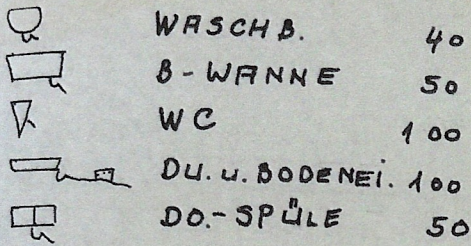 WASCHB. 40
B-WANNE 50
WC 100
DU. u. BODENEI. 100
DO.-SPÜLE 50